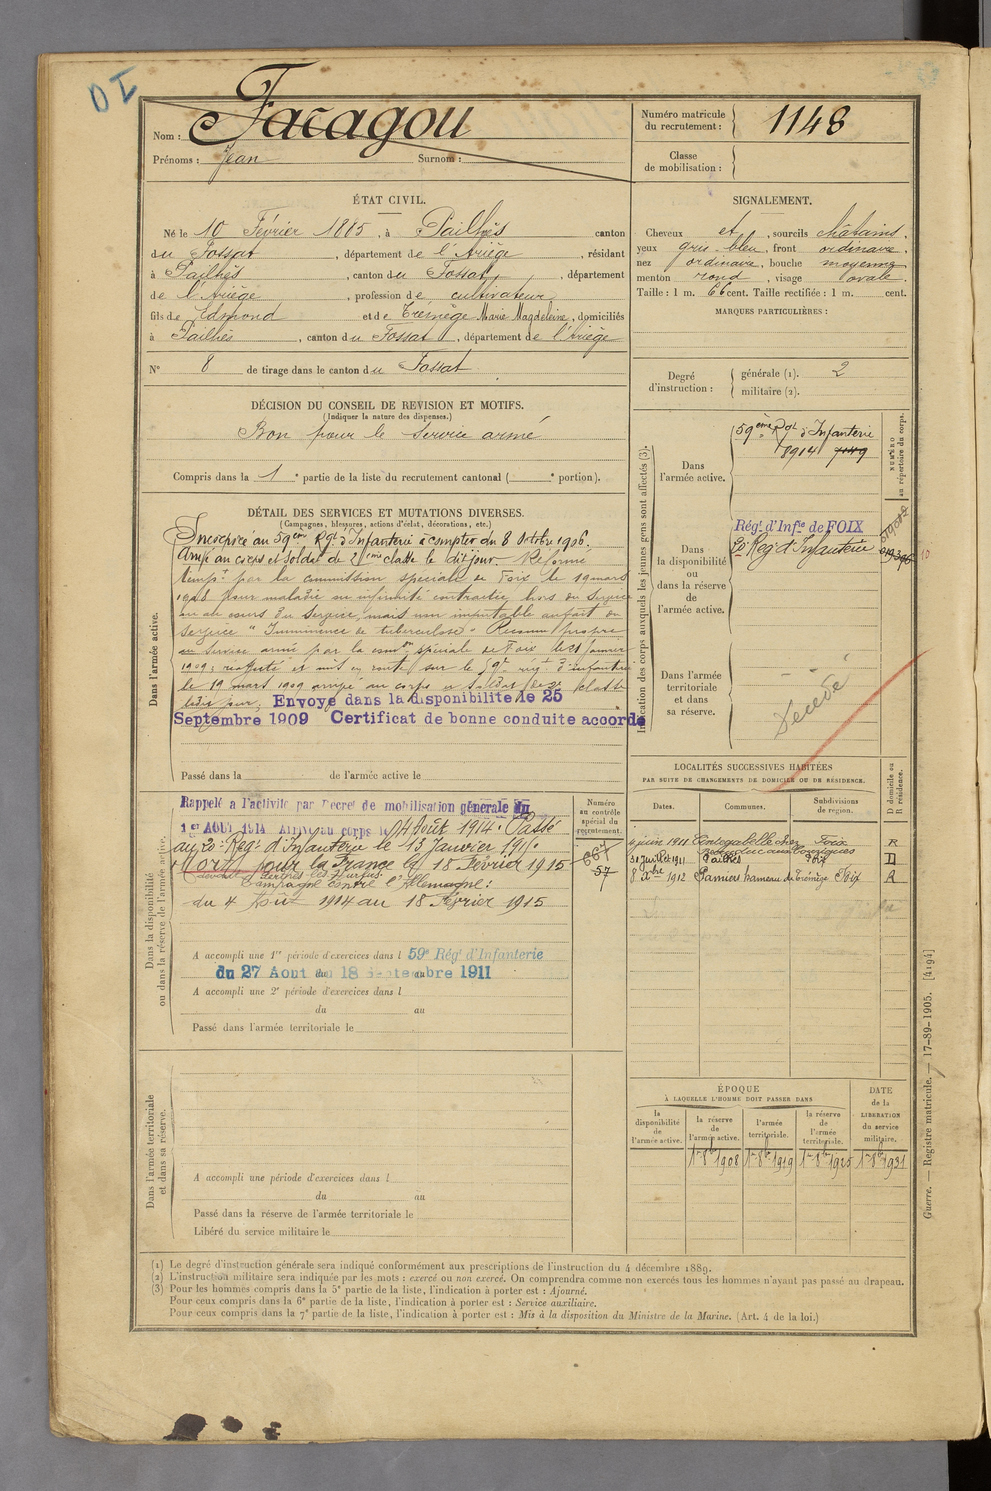 DI
Nom : Facagou
Prénoms : Jean Surnom :
Numéro matricule
du recrutement : 1148
Classe
de mobilisation :
ÉTAT CIVIL.
Né le 10 Février 1885, à Pailhès canton
du Fossat, département de l'Ariège, résidant
à Pailhès, canton du Fossat, département
de l'Ariège, profession de cultivateur
fils de Edmond et de Tremège Marie Magdeleine, domiciliés
à Pailhès, canton du Fossat, département de l'Ariège
N° 8 de tirage dans le canton du Fossat
SIGNALEMENT.
Cheveux et, sourcils châtains,
yeux gris-bleu, front ordinaire,
nez ordinaire, bouche moyenne
menton rond, visage ovale.
Taille : 1 m. 66 cent. Taille rectifiée : 1 m. cent.
MARQUES PARTICULIÈRES :
Degré
d'instruction :
générale (1). 2
militaire (2).
DÉCISION DU CONSEIL DE REVISION ET MOTIFS.
(Indiquer la nature des dispenses.)
Bon pour le service armé
Compris dans la 1e partie de la liste du recrutement cantonal ( e portion).
DÉTAIL DES SERVICES ET MUTATIONS DIVERSES.
(Campagnes, blessures, actions d'éclat, décorations, etc.)
Dans l'armée active.
Incorporé au 59ème Rgt d'Infanterie à compter du 8 Octobre 1906.
Arrivé au corps et soldat de 2ème classe le dit jour. Réformé
tempre par la commission spéciale de Foix le 19 mars
1908 pour maladie ou infirmité contractée hors du service
ou au cours du service, mais non imputable au fait du
service "Imminence de tuberculose" Reconnu propre
au service armé par la comon spéciale de Foix le 21 janvier
1909; réaffecté et mis en route sur le 59e régt d'infanterie
le 19 mars 1909 arrivé au corps et soldat de 2e classe
ledit jour; Envoyé dans la disponibilité le 25
Septembre 1909 Certificat de bonne conduite accordé
Passé dans la de l'armée active le
Indication des corps auxquels les jeunes gens sont affectés (3).
NUMÉRO
au répertoire du corps.
Dans
l'armée active.
59ème Rgt d'Infanterie
8914 7149
Dans
la disponibilité
ou
dans la réserve
de
l'armée active.
Régt d'Infie de FOIX
20e Regt d'Infanterie
019396
10
Dans l'armée
territoriale
et dans
sa réserve.
Décédé
Dans la disponibilité
ou dans la réserve de l'armée active.
Rappelé à l'activité par Décret de mobilisation générale du
1er AOUT 1914 Arrivé au corps le 04 Août 1914. Passé
au 20e Regt d'Infanterie le 13 Janvier 1915.
Mort pour la France le 18 Février 1915
devant Perthes les Hurlus
Campagne contre l'Allemagne:
du 4 Août 1914 au 18 Février 1915
Numéro
au contrôle
spécial du
recrutement.
667
57
A accompli une 1re période d'exercices dans l 59e Régt d'Infanterie
du 27 Aout au 18 Septembre 1911
A accompli une 2e période d'exercices dans l
du au
Passé dans l'armée territoriale le
LOCALITÉS SUCCESSIVES HABITÉES
PAR SUITE DE CHANGEMENTS DE DOMICILE OU DE RÉSIDENCE.
Dates. Communes. Subdivisions
de région. D domicile ou
R résidence.
6 juin 1911 Foix R
31 Juillet 1911 Pailhès Foix D
8 Xbre 1912 Pamiers hameau de Trémège Foix R
Dans l'armée territoriale
et dans sa réserve.
A accompli une période d'exercices dans l
du au
Passé dans la réserve de l'armée territoriale le
Libéré du service militaire le
ÉPOQUE
À LAQUELLE L'HOMME DOIT PASSER DANS
la
disponibilité
de
l'armée active.
la réserve
de
l'armée active.
l'armée
territoriale.
la réserve
de
l'armée
territoriale.
DATE
de la
LIBÉRATION
du service
militaire.
1er 8bre 1908 1er 8bre 1919 1er 8bre 1925 1er 8bre 1931
(1) Le degré d'instruction générale sera indiqué conformément aux prescriptions de l'instruction du 4 décembre 1889.
(2) L'instruction militaire sera indiquée par les mots : exercé ou non exercé. On comprendra comme non exercés tous les hommes n'ayant pas passé au drapeau.
(3) Pour les hommes compris dans la 5e partie de la liste, l'indication à porter est : Ajourné.
Pour ceux compris dans la 6e partie de la liste, l'indication à porter est : Service auxiliaire.
Pour ceux compris dans la 7e partie de la liste, l'indication à porter est : Mis à la disposition du Ministre de la Marine. (Art. 4 de la loi.)
Guerre. — Registre matricule. — 17-89-1905. [4194]